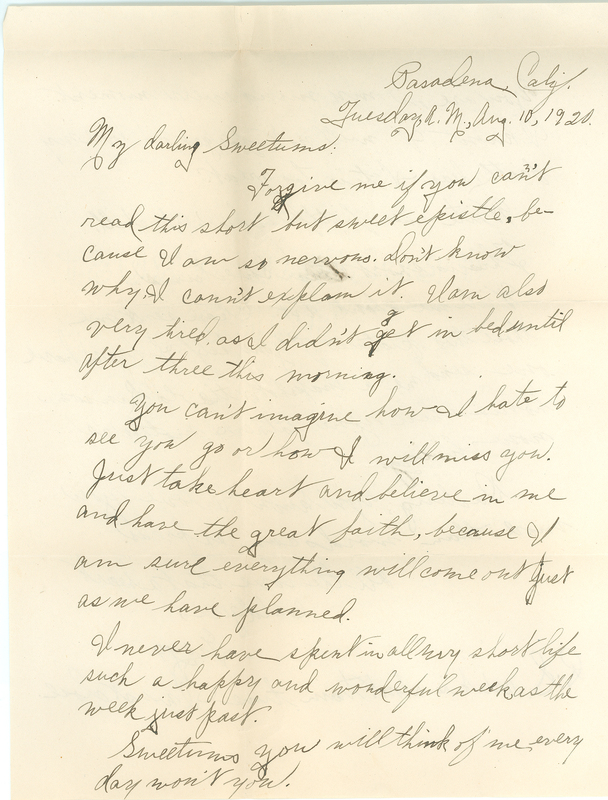 Pasadena, Calif.
Tuesday A.M., Aug. 10, 1920.
My darling Sweetums:
Forgive me if you can't
read this short but sweet epistle, be-
cause I am so nervous. Don't know
why, I cann't explain it. I am also
very tired, as I didn't get in bed until
after three this morning.
You can't imagine how I hate to
see you go or how I will miss you.
Just take heart and believe in me
and have the great faith, because I
am sure everything will come out just
as we have planned.
I never have spent in all my short life
such a happy and wonderful week as the
week just past.
Sweetums you will think of me every
day won't you.